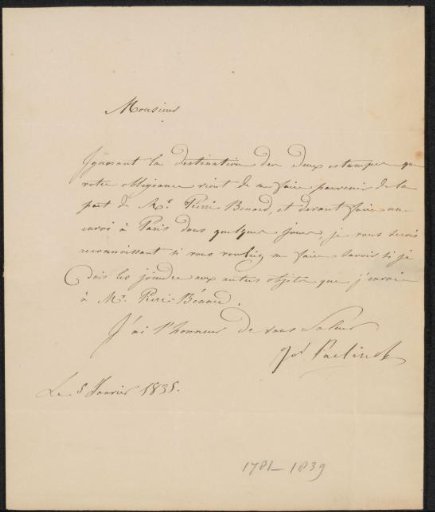 Monsieur
Ignorant la destination des deux estampes que
votre obligeance vient de me faire parvenir de la
part de Mr. Piéri Bénard, et devant faire un
envoi à Paris dans quelques jours, je vous serais
reconnaissant si vous vouliez me faire savoir si je
dois les joindre aux autres objets que j'envoie
à Mr. Piéri-Bénard.
J'ai l'honneur de vous saluer
Jos Paelinck
Le 5 Janvier 1835.
1781-1839